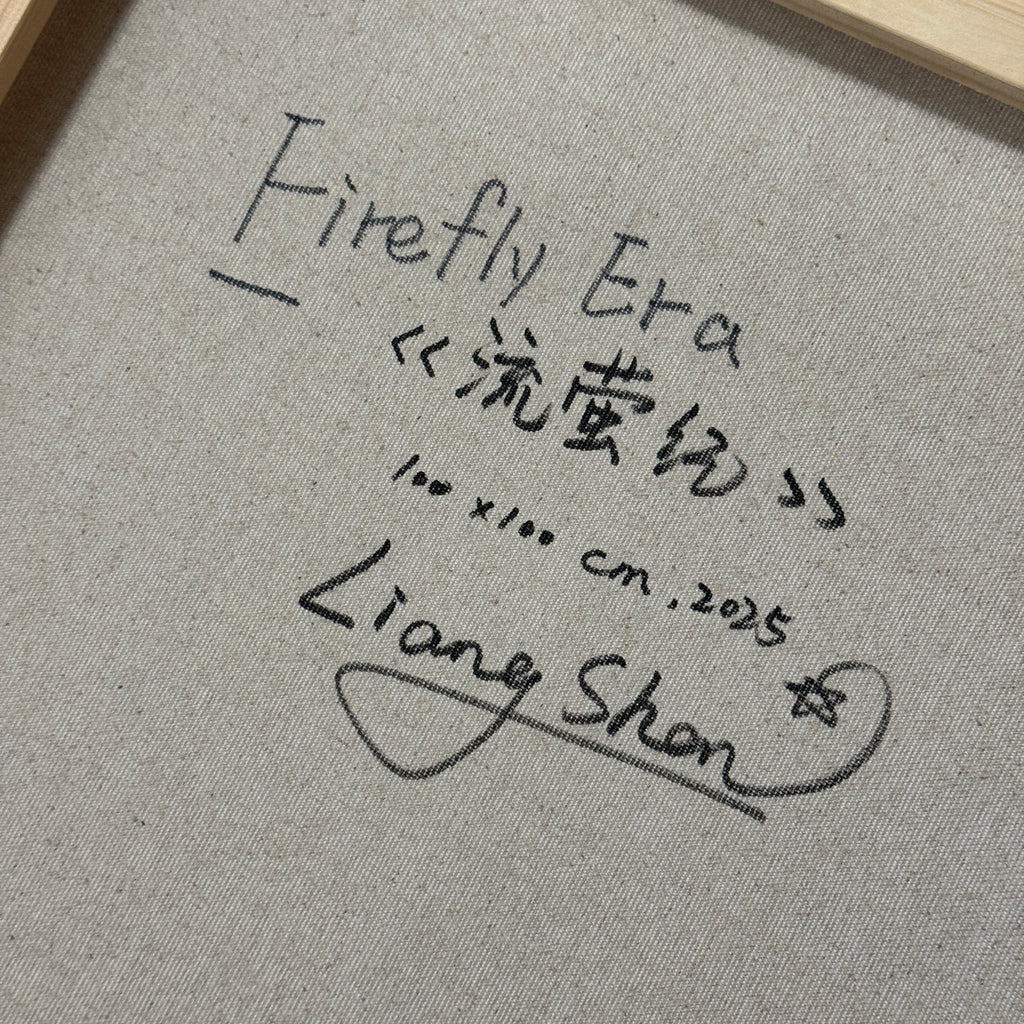 Firefly Era
《流萤纪》
100 x 100 cm. 2025
Liang Shen